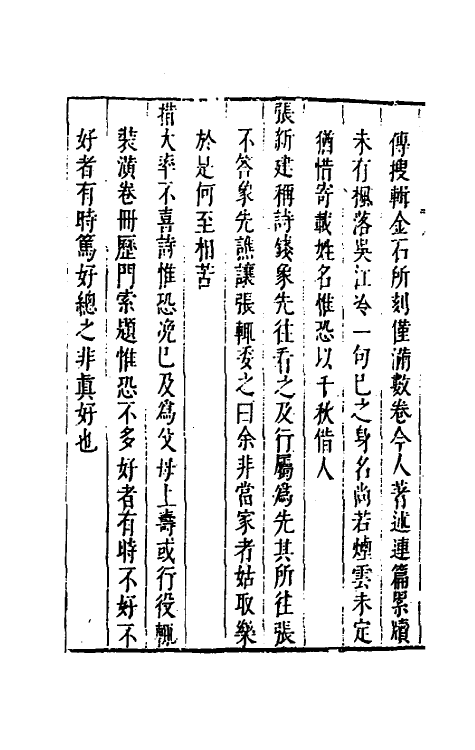 傳搜輯金石所刻僅滿數卷今人著述連篇累牘
未有楓落吳江冷一句已之身名尚若煙雲未定
猶惜寄載姓名惟恐以千秋借人
張新建稱詩錢象先往看之及行屬為先其所往張
不答象先譙讓張輒委之曰余非當家者姑取樂
於是何至相苦
措大率不喜詩惟恐浼已及為父母上壽或行役輒
裝潢卷冊歷門索題惟恐不多好者有時不好不
好者有時篤好總之非真好也